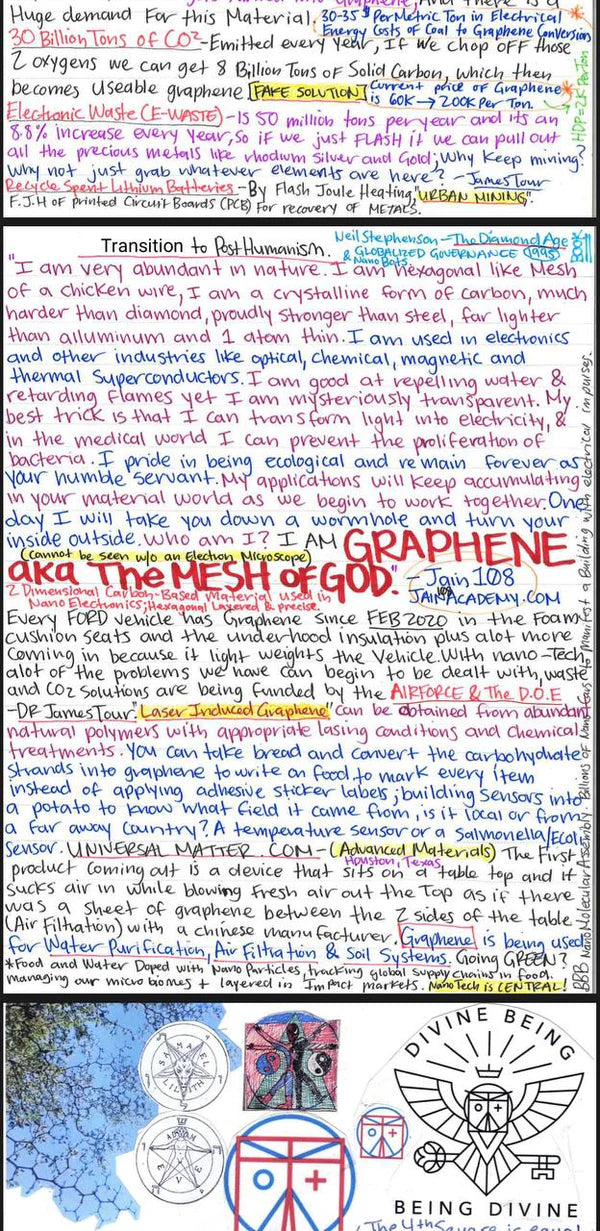 Huge demand For this Material. 30-35$ Per Metric Ton in Electrical
Energy Costs of Coal to Graphene Conversion
30 Billion Tons of CO² - Emitted every year, If we chop OFF those
2 oxygens we can get 8 Billion Tons of Solid Carbon, which then
becomes useable graphene. FAKE SOLUTION Current price of Graphene
is 60K → 200K Per Ton.
HDP = 2K Per Ton
Electronic Waste (E-WASTE) - Is 50 million tons per year and its an
8.8% increase every year, So if we just FLASH it we can pull out
all the precious metals like rhodium silver and Gold; Why Keep mining?
Why not just grab whatever elements are here? - James Tour
Recycle Spent Lithium Batteries - By Flash Joule Heating, "URBAN MINING".
F.J.H of printed Circuit Boards (PCB) For recovery of METALS.
Transition to PostHumanism.
Neil Stephenson - The Diamond Age
& GLOBALIZED GOVERNANCE (1995)
Nano Bots
Book
"I am very abundant in nature. I am Hexagonal like Mesh
of a chicken wire, I am a crystalline form of carbon, much
harder than diamond, proudly stronger than steel, far lighter
than alluminum and 1 atom thin. I am used in electronics
and other industries like optical, chemical, magnetic and
thermal Superconductors. I am good at repelling water &
retarding flames yet I am mysteriously transparent. My
best trick is that I can transform light into electricity, &
in the medical world I can prevent the proliferation of
bacteria. I pride in being ecological and remain forever as
your humble Servant. My applications will Keep accumulating
in your material world as we begin to work together. One
day I will take you down a wormhole and turn your
inside outside. Who am I? I AM GRAPHENE
(cannot be seen w/o an Electron Microscope)
aka The MESH of GOD."
- Jain 108
JAINACADEMY.COM
2 Dimensional Carbon-Based Material used in
Nano Electronics; Hexagonal Layered & precise.
Every FORD vehicle has Graphene since FEB 2020 in the Foam
cushion seats and the underhood insulation plus alot more
Coming in because it light weights the Vehicle. With nano-Tech
alot of the problems we have can begin to be dealt with, waste
and CO2 Solutions are being Funded by the AIRFORCE & The D.O.E
- DR James Tour. "Laser Induced Graphene" can be obtained from abundant
natural polymers with appropriate lasing conditions and chemical
treatments. You can take bread and convert the carbohydrate
strands into graphene to write on food, to mark every item
instead of applying adhesive sticker labels; building Sensors into
a potato to know what field it came from, is it local or from
a far away country? A temperature sensor or a Salmonella/Ecoli
Sensor. UNIVERSAL MATTER.COM - (Advanced Materials) The First
Houston, Texas
product coming out is a device that sits on a table top and it
Sucks air in while blowing fresh air out the Top as if there
was a sheet of graphene between the 2 sides of the table
(Air Filtration) with a chinese manufacturer. Graphene is being used
for Water Purification, Air Filtration & Soil Systems. Going GREEN?
*Food and Water Doped with Nano Particles, tracking global supply chains in food.
managing our micro biomes + layered in Impact markets. NanoTech is CENTRAL!
BBB NanoMolecular Assembly Billions of Nanobots to Manifest a Building with electrical impulses.
SAMAEL
LILITH
ADAM
EVE
DIVINE BEING
BEING DIVINE
The 4th Square is equal